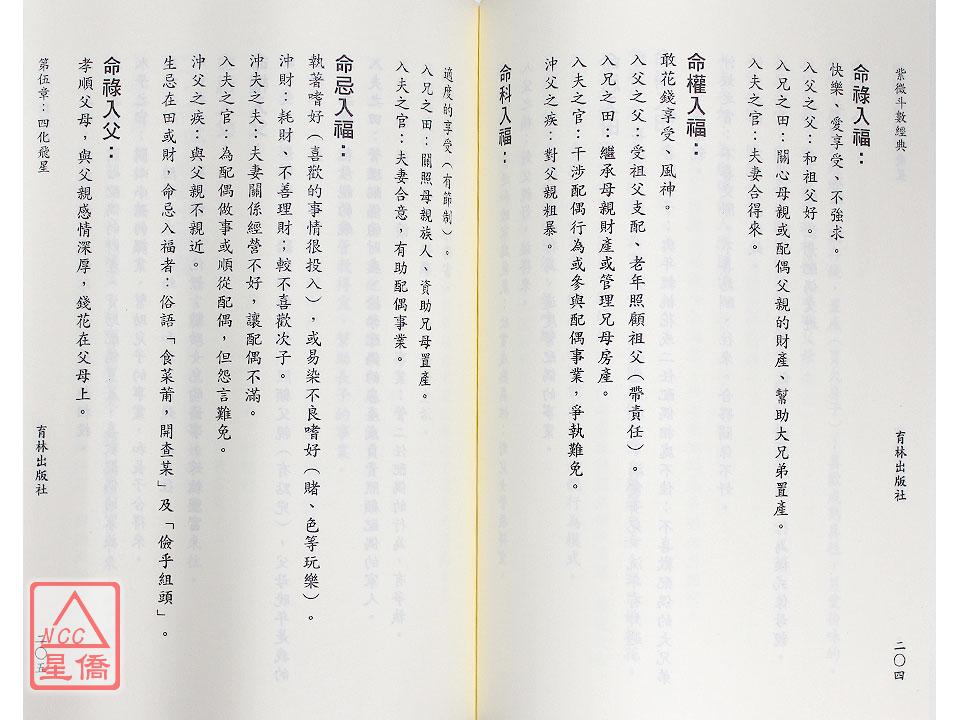 紫微斗數經典
育林出版社
二〇四
命祿入福：
快樂、愛享受、不強求。
入父之福：和祖父好。
入兄之田：關心母親或配偶父親的財產、幫助大兄弟置產。
入夫之官：夫妻合得來。
命權入福：
敢花錢享受、風神。
入父之福：受祖父支配、老年照顧祖父（帶責任）。
入兄之田：繼承母親財產或管理兄母房產。
入夫之官：干涉配偶行為或參與配偶事業，爭執難免。
沖父之疾：對父親粗暴。
命科入福：
適度的享受（有節制）。
入兄之田：關照母親族人、資助兄母置產。
入夫之官：夫妻合意，有助配偶事業。
命忌入福：
執著嗜好（喜歡的事情很投入），或易染不良嗜好（賭、色等玩樂）。
沖財：耗財、不善理財；較不喜歡次子。
沖夫之夫：夫妻關係經營不好，讓配偶不滿。
入夫之官：為配偶做事或順從配偶，但怨言難免。
沖父之疾：與父親不親近。
生忌在田或財，命忌入福者：俗語「食菜莆，開查某」及「儉乎組頭」。
命祿入父：
孝順父母，與父親感情深厚，錢花在父母上。
第伍章：四化飛星
育林出版社
二〇五
NCC
星僑